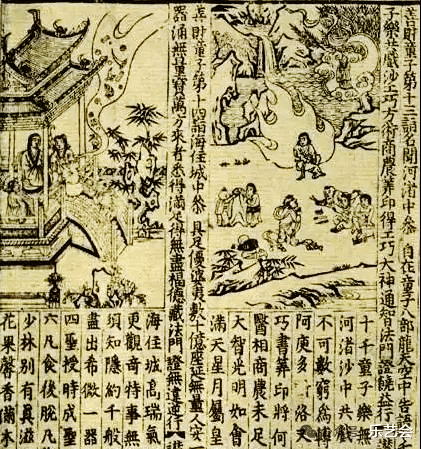 善財童子第十三詣名聞河渚中參 自在童子八部龍天空中告語
樂共戲沙工巧方術商農筭印得工巧大神通智法門證饒益行
十千童子樂無
河渚沙中共戲
不可數窮為轉
阿庾多 洛叉
巧書筭印將何
醫相商農未足
大智光明如會
滿天星月屬皇
善財童子第十四詣海住城中參 具足優婆夷數十億座延無量人安一
器滿無量寶萬方來者悉得滿足得無盡福德藏法門 證無違逆行
海住城高瑞氣
更觀奇特事無
須知隱約千般
盡出希微一器
四聖授時成聖
六凡食後脫凡
少林別有真滋
花果馨香備本
乐艺会